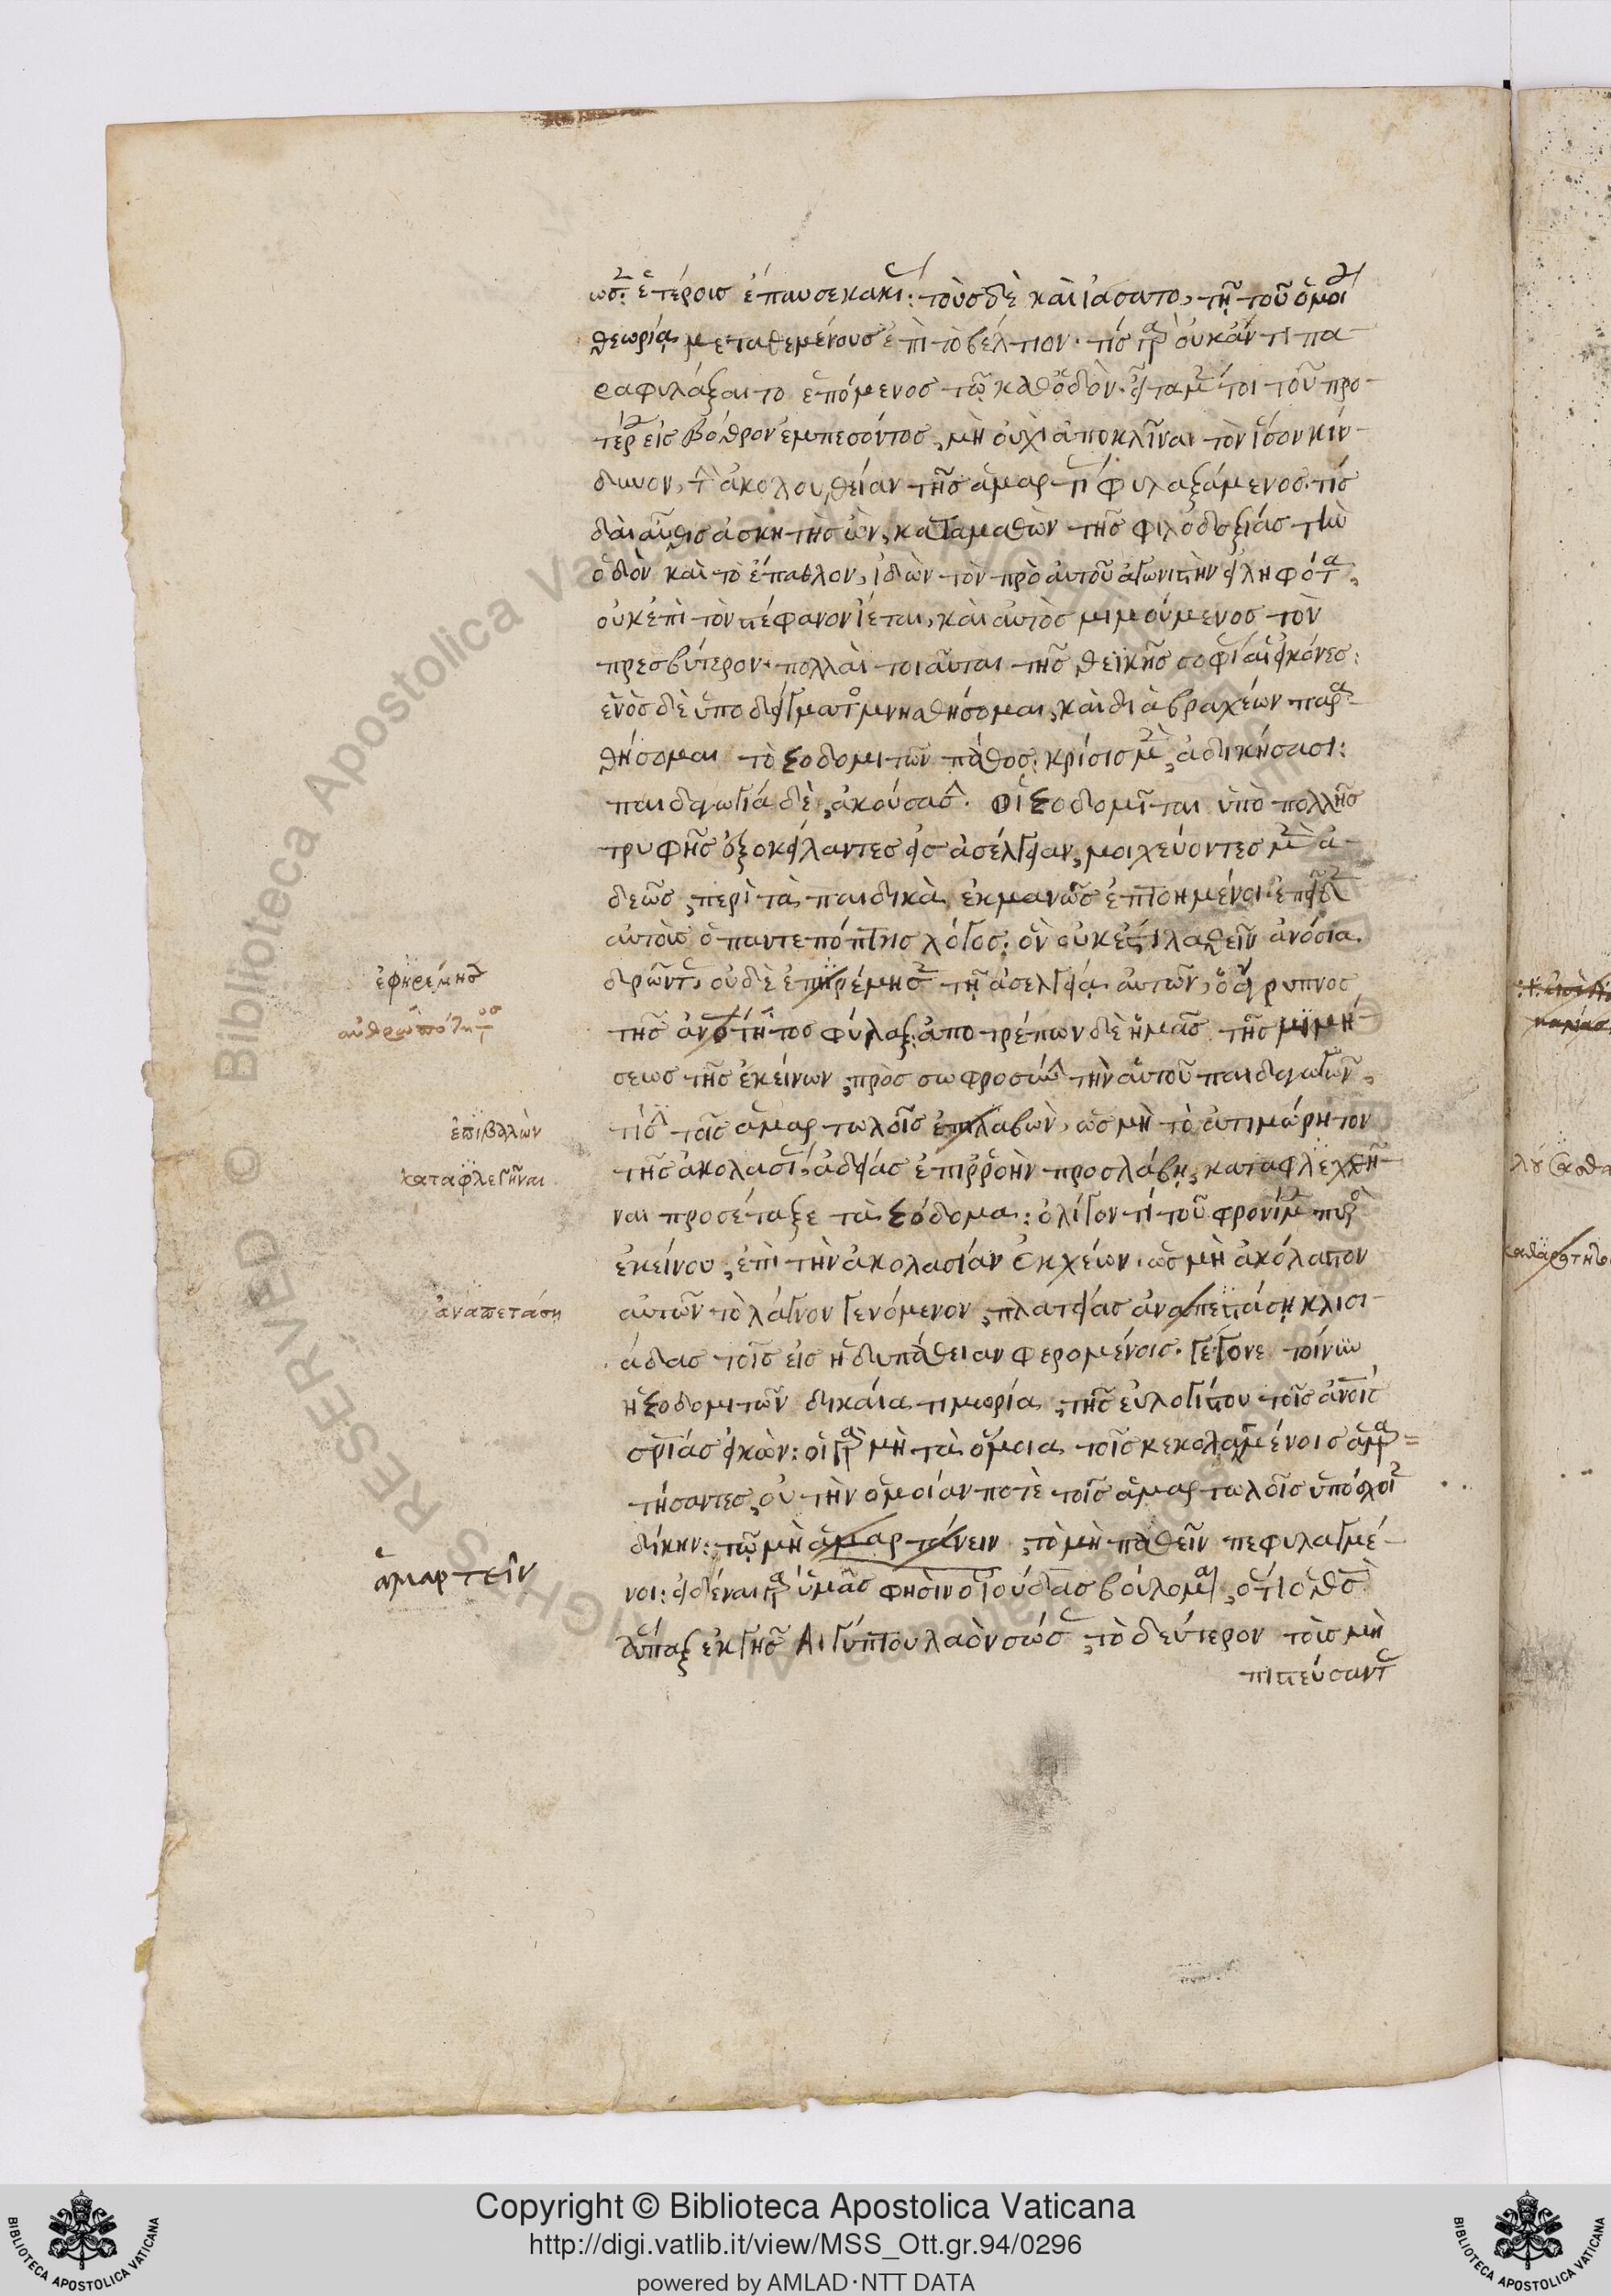 ἑτέροις ἔπαυσε κακί: τοὺς δὲ καὶ ἰάσατο, τῇ τοῦ ὁμοί
θεωρίᾳ μεταθεμένους ἐπὶ τὸ βέλτιον· τίς γρ οὐκ ἄν τι πα-
ραφυλάξαιτο ἑπόμενος τῷ καθ' ὁδὸν. εἶτα μτοι τοῦ προ-
τέρ εἰς βόθρον ἐμπεσόντος, μὴ οὐχὶ ἀποκλῖναι τὸν ἴσον κίν-
δυνον, τ ἀκολουθείαν τῆς ἁμαρτί φυλαξάμενος. τίς
δαὶ αὖθις ἀσκητὴς ὢν, καταμαθὼν τῆς φιλοδοξίας τὴν
ὁδὸν καὶ τὸ ἔπαθλον, ἰδὼν τὸν πρὸ αὑτοῦ ἀγωνιστὴν εἰληφότα,
οὐκ ἐπὶ τὸν στέφανον ἵεται, καὶ αὐτὸς μιμούμενος τὸν
πρεσβύτερον· πολλαὶ τοιαῦται τῆς θεϊκῆς σοφί αἱ εἰκόνες:
ἑνὸς δὲ ὑποδείγματ μνησθήσομαι, καὶ διὰ βραχέων παρα-
θήσομαι τὸ Σοδομιτῶν πάθος: κρίσις μὲν, ἀδικήσασι:
παιδαγωγία δὲ, ἀκούσασ. οἱ Σοδομῖται ὑπὸ πολλῆς
τρυφῆς ἐξοκείλαντες εἰς ἀσέλγειαν, μοιχεύοντες μὲν ἀ-
δεῶς, περὶ τὰ παιδικὰ ἐκμανῶς ἐπτοημένοι. ἐπεῖδεν
αὐτοὺς ὁ παντεπόπτης λόγος: ὃν οὐκ ἔστι λαθεῖν ἀνόσια
δρῶντ, οὐδὲ ἐπηρέμησ τῇ ἀσελγείᾳ αὐτῶν, ὁ ἄγρυπνος
ἐφηρέμησ
τῆς ἀνοτητος φύλαξ: ἀποτρέπων δὲ ἡμᾶς τῆς μιμή-
ἀνθρωπότητος
σεως τῆς ἐκείνων, πρὸς σωφροσύν τὴν αὑτοῦ παιδαγωγῶν,
τισ τοῖς ἁμαρτωλοῖς ἐπιλαβὼν, ὡς μὴ τὸ ἀτιμώρητον
ἐπιβαλὼν
τῆς ἀκολασί, ἀδείας ἐπιρροὴν προσλάβῃ, καταφλεχθῆ-
καταφλεγῆναι
ναι προσέταξε τὰ Σόδομα: ὀλίγον τι τοῦ φρονίμ πυρὸ
ἐκείνου, ἐπὶ τὴν ἀκολασίαν ἐκχέων. ὡς μὴ ἀκόλαστον
αὐτῶν τὸ λάγνον γενόμενον, πλατείας ἀναπετάσῃ κλισι-
ἀναπετάσῃ
άδας τοῖς εἰς ἡδυπάθειαν φερομένοις. γέγονε τοίνυν
ἡ Σοδομιτῶν δικαία τιμωρία, τῆς εὐλογίστου τοῖς ἀνοις
σριας εἰκὼν: οἱ γρ μὴ τὰ ὅμοια τοῖς κεκολασμένοις ἁμαρ=
τήσαντες, οὐ τὴν ὁμοίαν ποτὲ τοῖς ἁμαρτωλοῖς ὑπόσχοι
δίκην: τῷ μὴ ἁμαρτάνειν, τὸ μὴ παθεῖν πεφυλαγμέ-
ἁμαρτεῖν
νοι: εἰδέναι γρ ὑμᾶς φησὶν ὁ Ἰούδας βούλομαι, ὅτι ὁ θς
ἅπαξ ἐκ γῆς Αἰγύπτου λαὸν σώσ, τὸ δεύτερον τοὺς μὴ
πιστεύσαντ
Copyright © Biblioteca Apostolica Vaticana
http://digi.vatlib.it/view/MSS_Ott.gr.94/0296
powered by AMLAD·NTT DATA
BIBLIOTECA APOSTOLICA VATICANA
BIBLIOTECA APOSTOLICA VATICANA